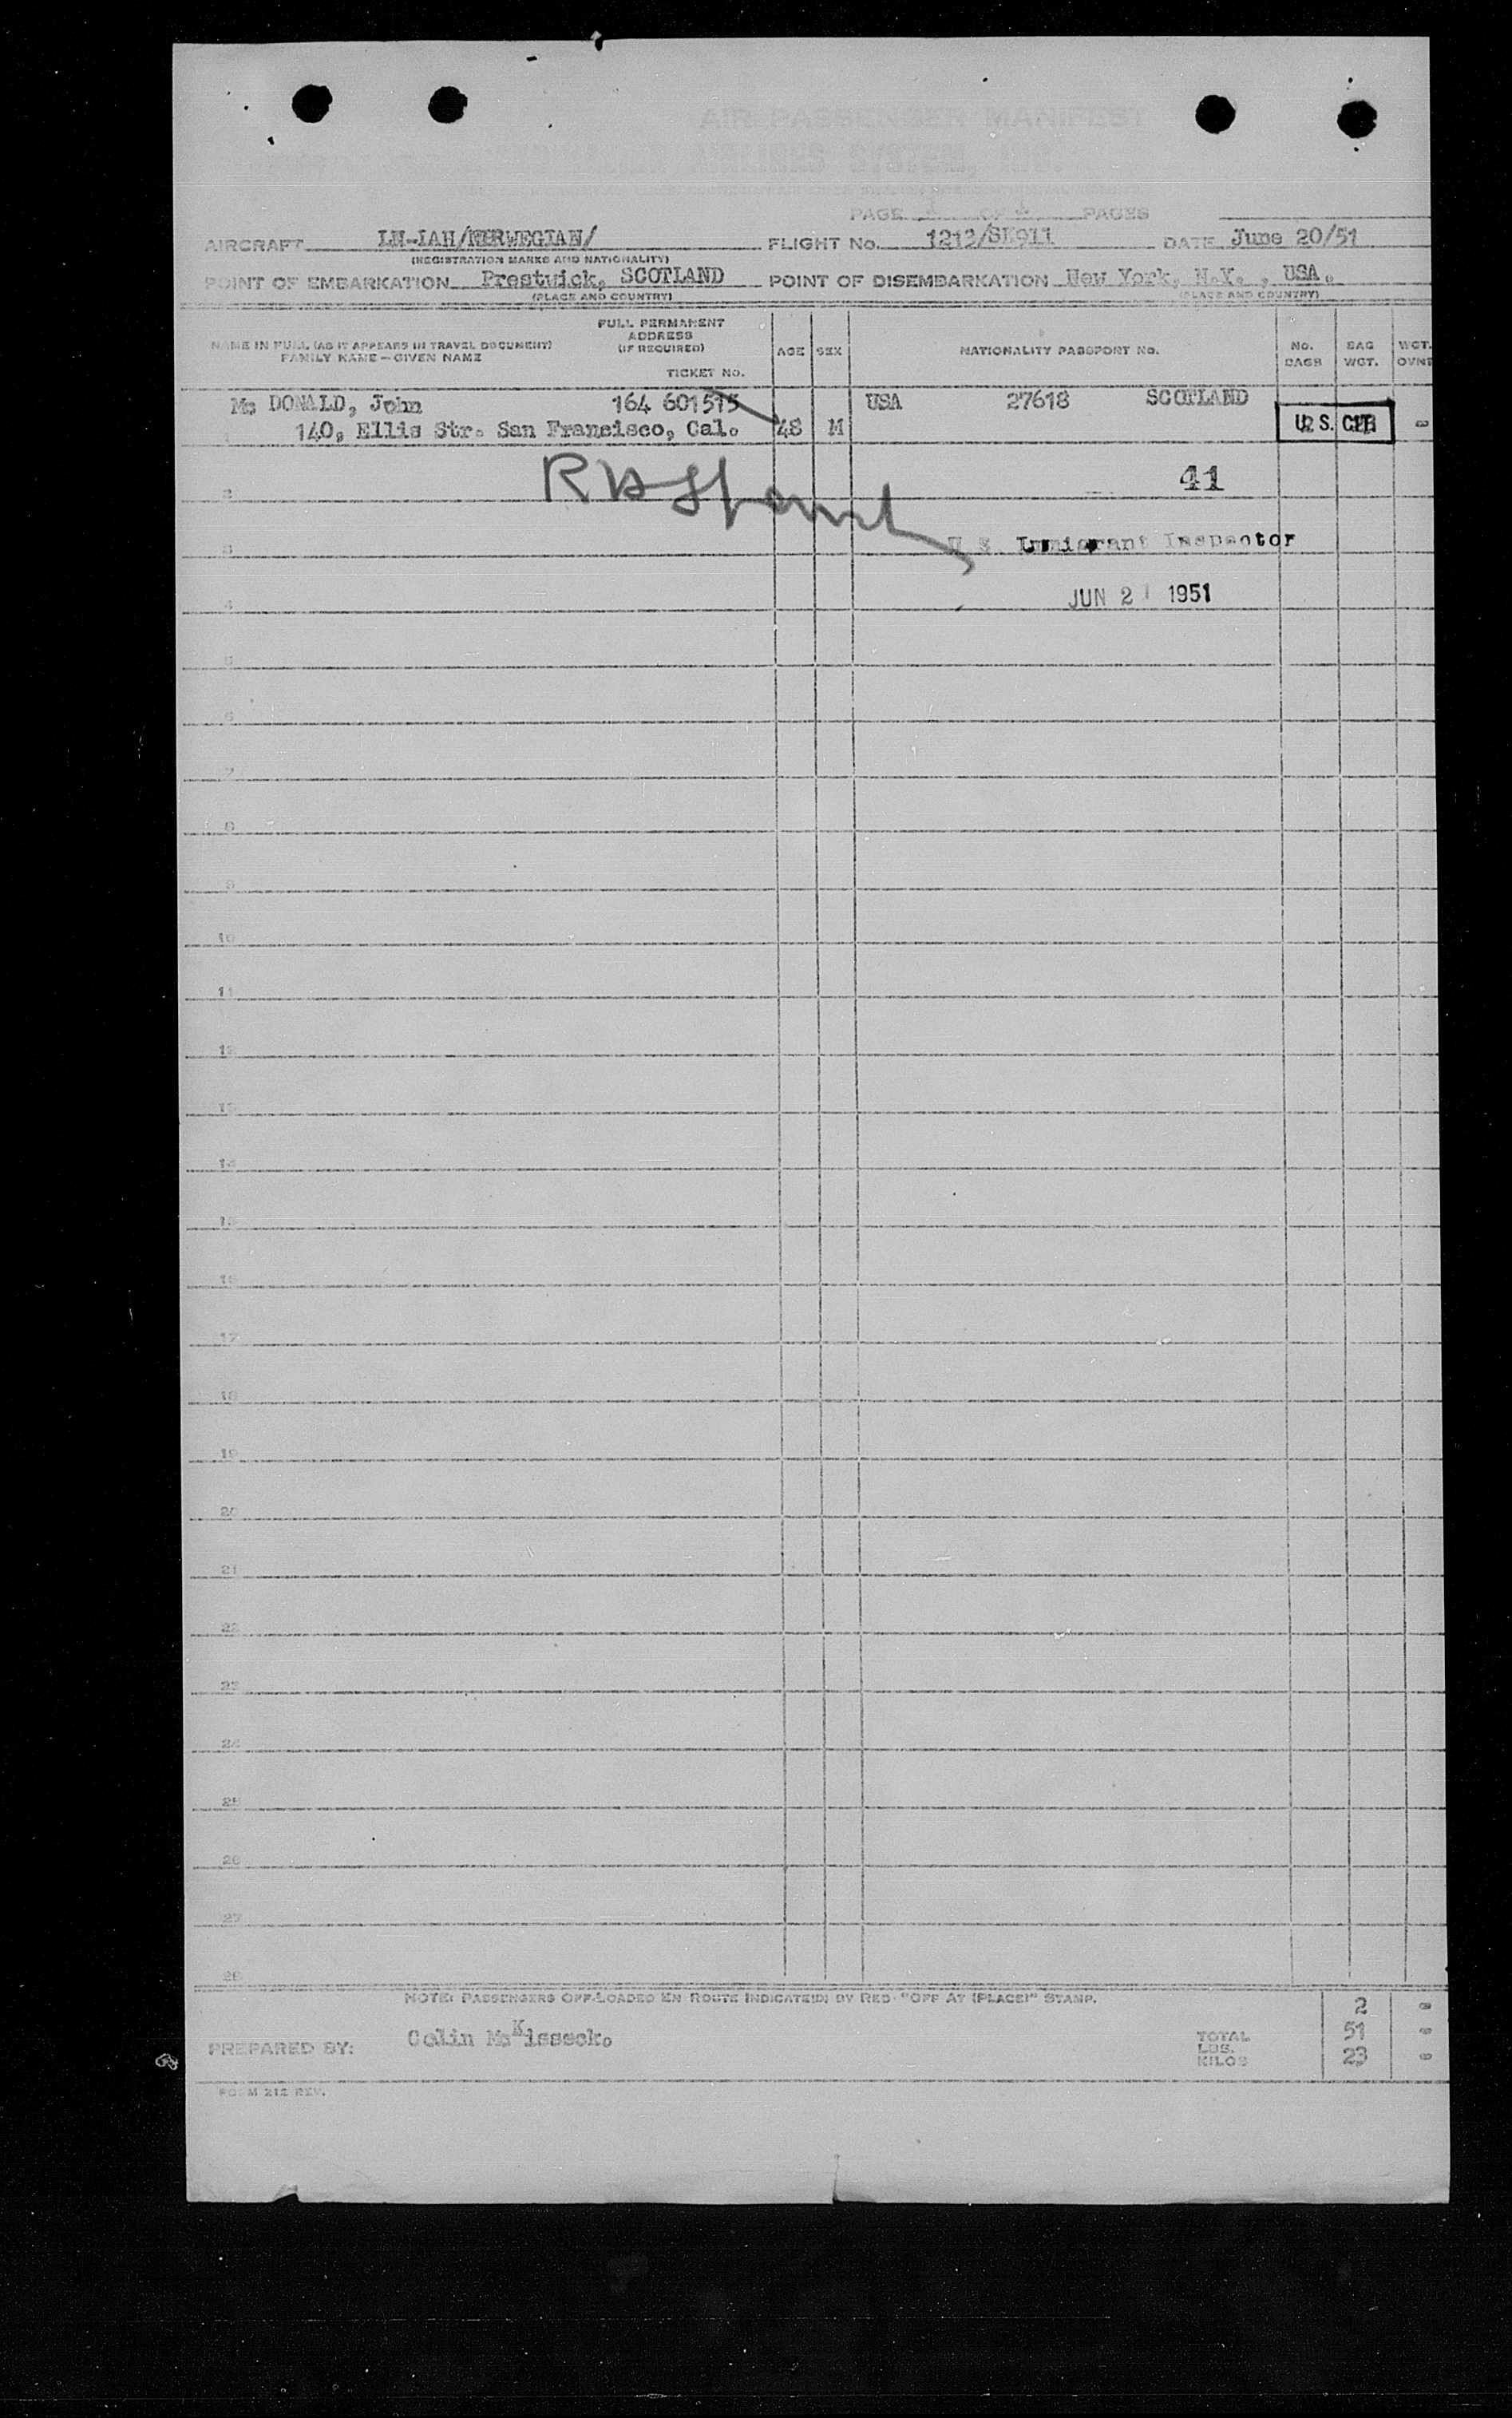 AIR PASSENGER MANIFEST
AIRLINES SYSTEM, INC.
PAGE 1 OF 1 PAGES
AIRCRAFT LN-IAH/NERWEGIAN/ FLIGHT No. 1212/SK911 DATE June 20/51
(REGISTRATION MARKS AND NATIONALITY)
POINT OF EMBARKATION Prestwick, SCOTLAND POINT OF DISEMBARKATION New York, N.Y. , USA.
(PLACE AND COUNTRY) (PLACE AND COUNTRY)
NAME IN FULL (AS IT APPEARS IN TRAVEL DOCUMENT) FAMILY NAME—GIVEN NAME
FULL PERMANENT ADDRESS (IF REQUIRED)
TICKET No.
AGE SEX NATIONALITY PASSPORT No. No. BAGS BAG WGT. WGT. OVNT
Mc DONALD, John 164 601515 USA 27618 SCOTLAND
1 140, Ellis Str. San Francisco, Cal. 48 M U.S. CIT. -
2 41
3 U S Immigrant Inspector
4 JUN 21 1951
5
6
7
8
9
10
11
12
13
14
15
16
17
18
19
20
21
22
23
24
25
26
27
28
NOTE: PASSENGERS OFF-LOADED EN ROUTE INDICATE(D) BY RED "OFF AT (PLACE)" STAMP.
2 -
PREPARED BY: Colin McKisseck.
TOTAL
LBS. 51 -
KILOS 23 -
FORM 212 REV.